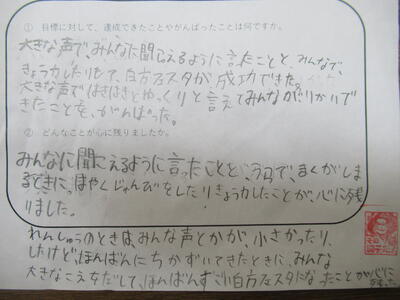 ① 目標に対して、達成できたことやがんばったことは何ですか。
大きな声で、みんなに聞こえるように言たことと、みんなで、
きょう力したりして、白方フェスタが成功できた。
大きな声ではきはきとゆっくりと言えてみんながりかいで
きたことを、がんばった。
② どんなことが心に残りましたか。
みんなに聞こえるように言ったことと、で、まくがしま
るときに、はやくじょんびをしたりきょう力したことが、心に残
りました。
れんしゅうのときは、みんな声とかが、小さかったり、
したけど、ほんばんにちかずいてきたときに、みんな
大きなこえをだして、ほんばんすごい白方フェスタになったことが心に